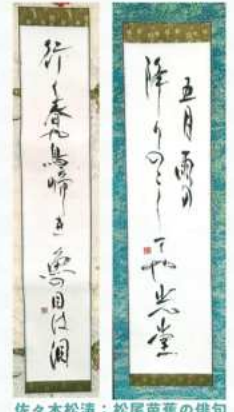 五月雨の
降りのこしてや光堂
行く春や鳥啼き魚の目は泪
佐々木松濤：松尾芭蕉の俳句